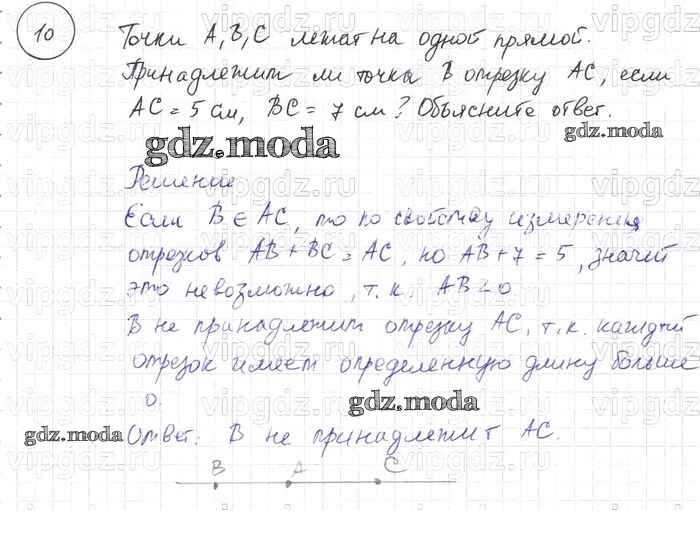 10
Точки A, B, C лежат на одной прямой.
Принадлежит ли точка B отрезку AC, если
AC = 5 см, BC = 7 см? Объясните ответ.
gdz.moda
gdz.moda
Решение
Если B ∈ AC, то по свойству измерения
отрезков AB + BC = AC, но AB + 7 = 5, значит
это невозможно, т.к. AB < 0
B не принадлежит отрезку AC, т.к. каждый
отрезок имеет определенную длину больше
0.
gdz.moda
gdz.moda
Ответ: B не принадлежит AC.
B A C
vipgdz.ru